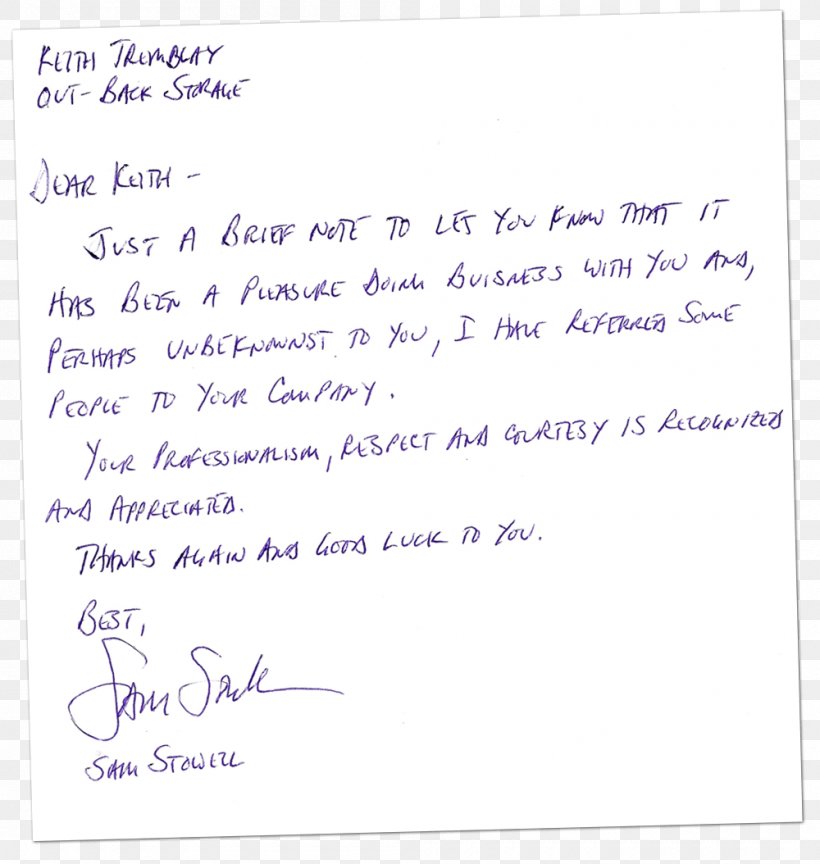 KEITH TREMBLAY
OUT-BACK STORAGE
DEAR KEITH -
JUST A BRIEF NOTE TO LET YOU KNOW THAT IT
HAS BEEN A PLEASURE DOING BUISNESS WITH YOU AND,
PERHAPS UNBEKNOWNST TO YOU, I HAVE REFERRED SOME
PEOPLE TO YOUR COMPANY.
YOUR PROFESSIONALISM, RESPECT AND COURTESY IS RECOGNIZED
AND APPRECIATED.
THANKS AGAIN AND GOOD LUCK TO YOU.
BEST,
SAM
SAM STOWELL